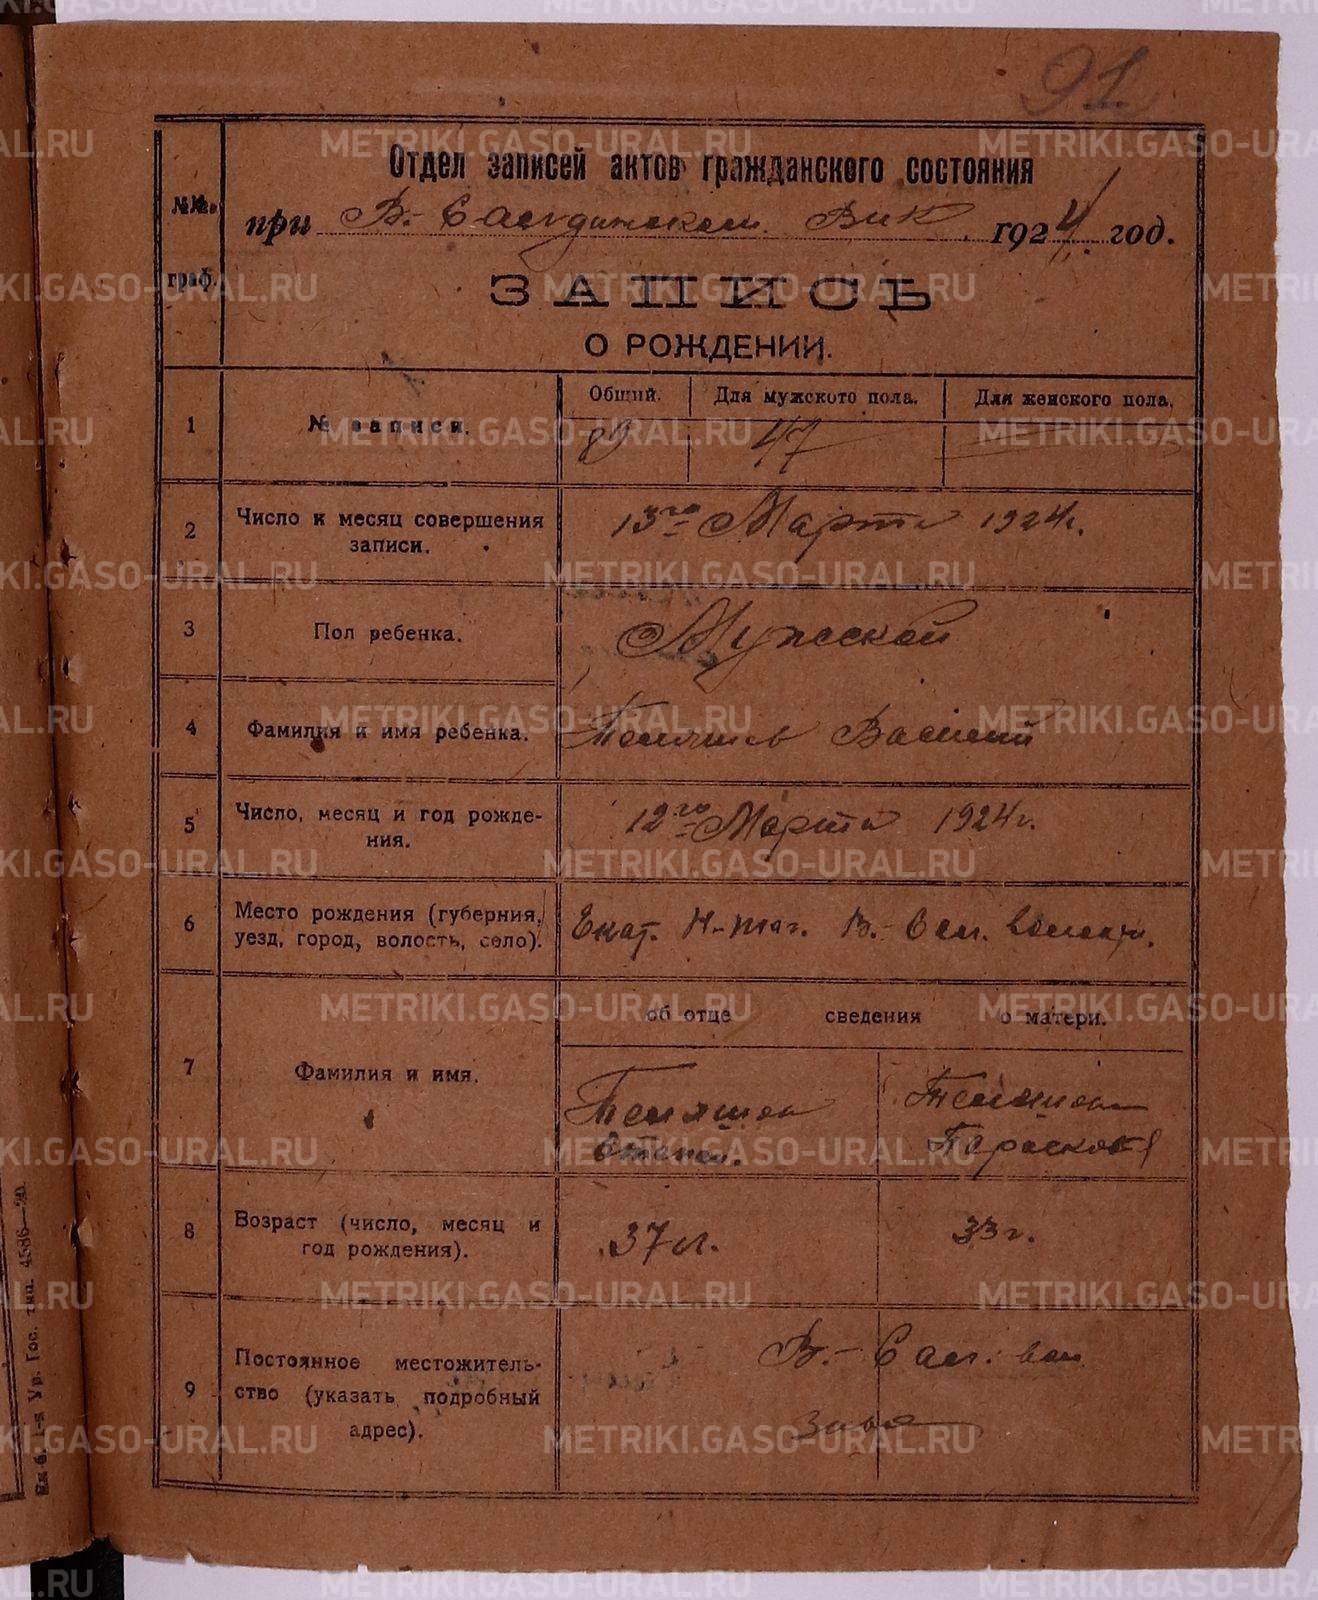 91.
Отдел записей актов гражданского состояния
№№
граф.
при В.-Салдинском Вик 1924 год.
ЗАПИСЬ
О РОЖДЕНИИ.
1 № записи. Общий. Для мужского пола. Для женского пола.
89 47
2 Число и месяц совершения
записи.
13го Марта 1924г.
3 Пол ребенка. Мужской
4 Фамилия и имя ребенка. Василий
5 Число, месяц и год рожде-
ния.
12го Марта 1924г.
6 Место рождения (губерния,
уезд, город, волость, село).
Екат. Н-таг. В.-Сал. волости.
об отце сведения о матери.
7 Фамилия и имя.
Степан.
8 Возраст (число, месяц и
год рождения).
37 л. 33 г.
9 Постоянное местожитель-
ство (указать подробный
адрес).
В.-Салд. вол
Ек-б. 1-я Ур. Гос. тип. 4586—20.
METRIKI.GASO-URAL.RU